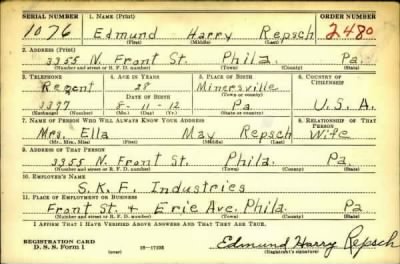 SERIAL NUMBER 1. NAME (Print) ORDER NUMBER
1076 Edmund Harry Repsch 2480
(First) (Middle) (Last)
2. ADDRESS (Print)
3355 N. Front St. Phila. Pa.
(Number and street or R. F. D. number) (Town) (County) (State)
3. TELEPHONE 4. AGE IN YEARS 5. PLACE OF BIRTH 6. COUNTRY OF CITIZENSHIP
Regent 28 Minersville
(Town or county)
DATE OF BIRTH
3397 8-11-12 Pa U.S.A.
(Exchange) (Number) (Mo.) (Day) (Yr.) (State or country)
7. NAME OF PERSON WHO WILL ALWAYS KNOW YOUR ADDRESS 8. RELATIONSHIP OF THAT PERSON
Mrs. Ella May Repsch Wife
(Mr., Mrs., Miss) (First) (Middle) (Last)
9. ADDRESS OF THAT PERSON
3355 N. Front St. Phila. Pa.
(Number and street or R. F. D. number) (Town) (County) (State)
10. EMPLOYER'S NAME
S.K.F. Industries
11. PLACE OF EMPLOYMENT OR BUSINESS
Front St. + Erie Ave. Phila. Pa
(Number and street or R. F. D. number) (Town) (County) (State)
I AFFIRM THAT I HAVE VERIFIED ABOVE ANSWERS AND THAT THEY ARE TRUE.
REGISTRATION CARD
D. S. S. Form 1 (over) Edmund Harry Repsch
(Registrant's signature)